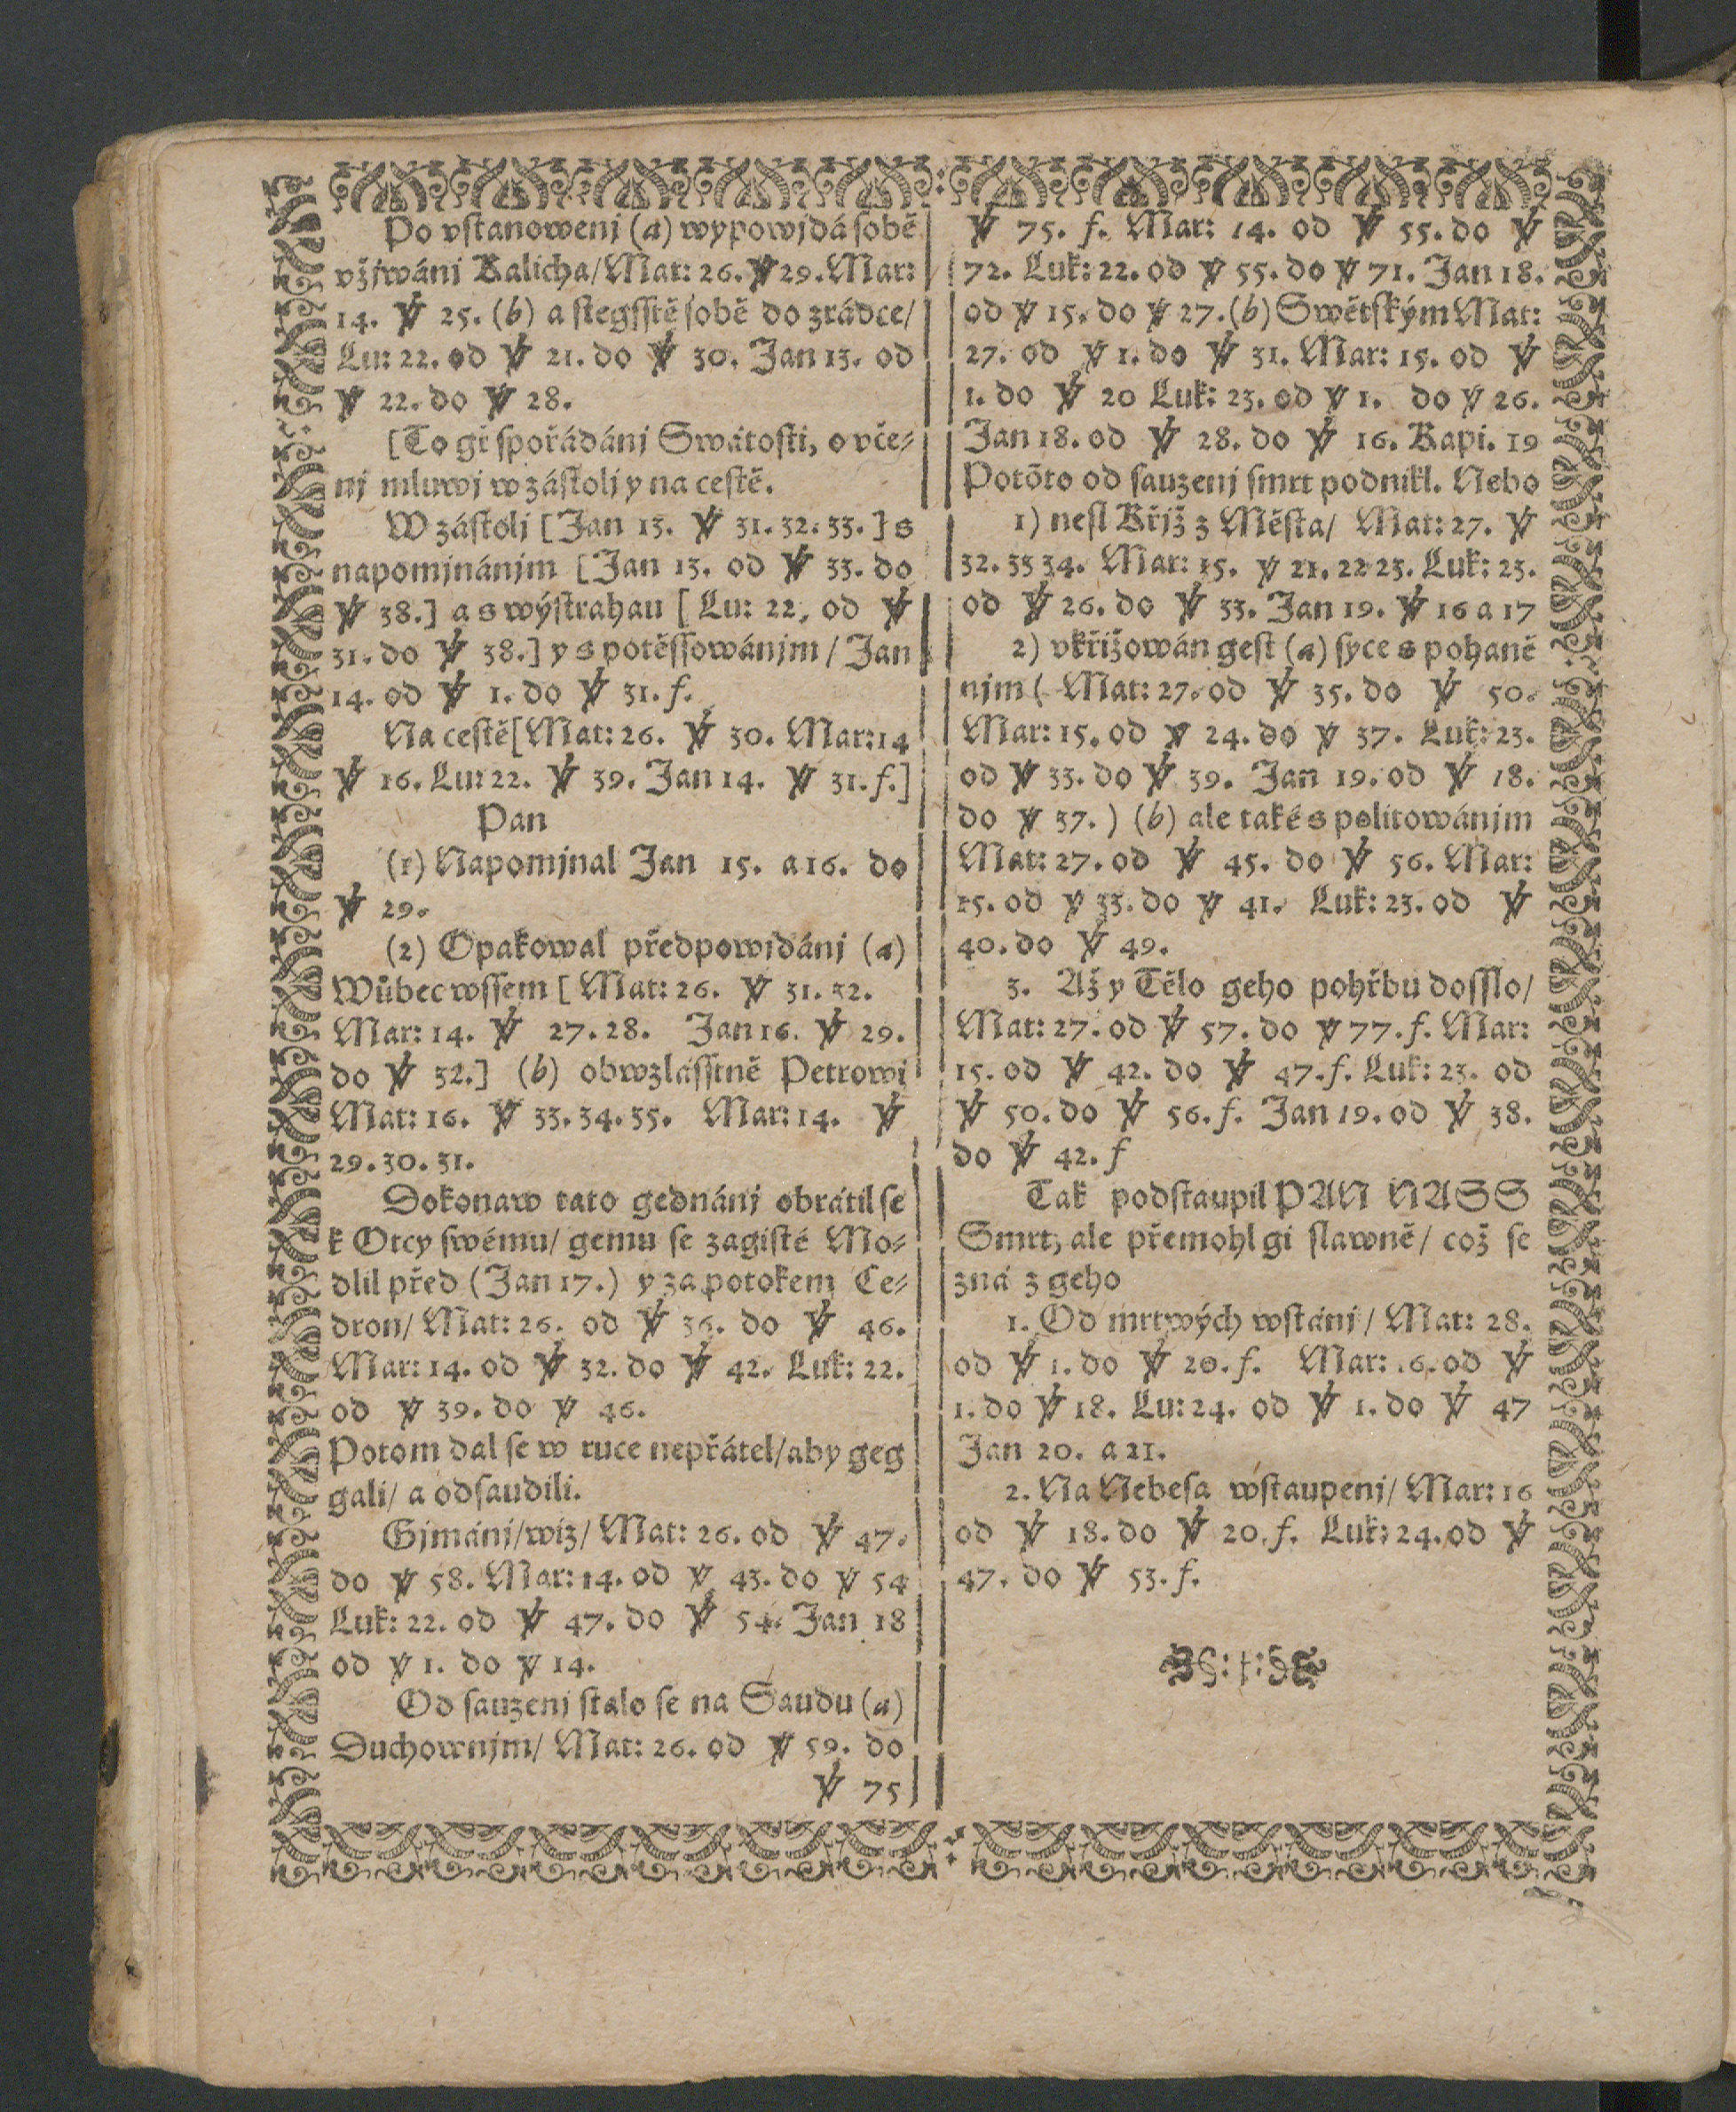 Po vstanowenj (a) wypowjdá sobě
vžjwánj Kalicha/ Mat: 26. ℣ 29. Mar:
14. ℣ 25. (b) a stegsstě sobě do zrádce/
Lu: 22. od ℣ 21. do ℣ 30. Jan 13. od
℣ 22. do ℣ 28.
[To gt spořádánj Swátosti, o vče⸗
nj mluwj w zástolj y na cestě.
W zástolj [Jan 13. ℣ 31. 32. 33.] s
napomjnánjm [Jan 13. od ℣ 33. do
℣ 38.] a s weystrahau [Lu: 22, od ℣
31. do ℣ 38.] y s potěssowánjm/ Jan
14. od ℣ 1. do ℣ 31. f.
Na cestě [Mat: 26. ℣ 30. Mar: 14
℣ 16. Lu: 22. ℣ 39. Jan 14. ℣ 31. f.]
Pan
(1) Napomjnal Jan 15. a 16. do
℣ 29.
(2) Opakowal předpowjdánj (a)
Wůbec wssem [Mat: 26. ℣ 31. 32.
Mar: 14. ℣ 27. 28. Jan 16. ℣ 29.
do ℣ 32.] (b) obwzlásstně Petrowi
Mat: 16. ℣ 33. 34. 35. Mar: 14. ℣
29. 30. 31.
Dokonaw tato gednánj obrátil se
k Otcy swému/ gemu se zagisté Mo⸗
dlil před (Jan 17.) y za potokem Ce⸗
dron/ Mat: 26. od ℣ 36. do ℣ 46.
Mar: 14. od ℣ 32. do ℣ 42. Luk: 22.
od ℣ 39. do ℣ 46.
Potom dal se w ruce nepřátel/ aby geg
gali/ a odsaudili.
Gjmánj/ wiz/ Mat: 26. od ℣ 47.
do ℣ 58. Mar: 14. od ℣ 43. do ℣ 54
Luk: 22. od ℣ 47. do ℣ 54. Jan 18
od ℣ 1. do ℣ 14.
Od sauzenj stalo se na Saudu (a)
Duchownjm/ Mat: 26. od ℣ 59. do
℣ 75
℣ 75. f. Mar: 14. od ℣ 55. do ℣
72. Luk: 22. od ℣ 55. do ℣ 71. Jan 18.
od ℣ 15. do ℣ 27. (b) Swětským Mat:
27. od ℣ 1. do ℣ 31. Mar: 15. od ℣
1. do ℣ 20 Luk: 23. od ℣ 1. do ℣ 26.
Jan 18. od ℣ 28. do ℣ 16. Kapi. 19
Potõto od sauzenj smrt podnikl. Nebo
1) nesl Křjž z Města/ Mat: 27. ℣
32. 33 34. Mar: 15. ℣ 21. 22 23. Luk: 23.
od ℣ 26. do ℣ 33. Jan 19. ℣ 16 a 17
2) vkřižowán gest (a) syce s pohaně
njm (Mat: 27. od ℣ 35. do ℣ 50.
Mar: 15. od ℣ 24. do ℣ 37. Luk: 23.
od ℣ 33. do ℣ 39. Jan 19. od ℣ 18.
do ℣ 37.) (b) ale také s politowánjm
Mat: 27. od ℣ 45. do ℣ 56. Mar:
15. od ℣ 33. do ℣ 41. Luk: 23. od ℣
40. do ℣ 49.
3. Až y Tělo geho pohřbu dosslo/
Mat: 27. od ℣ 57. do ℣ 77. f. Mar:
15. od ℣ 42. do ℣ 47. f. Luk: 23. od
℣ 50. do ℣ 56. f. Jan 19. od ℣ 38.
do ℣ 42. f
Tak podstaupil PAN NASS
Smrt, ale přemohl gi slawně/ což se
zná z geho
1. Od mrtwých wstánj/ Mat: 28.
od ℣ 1. do ℣ 20. f. Mar: 16. od ℣
1. do ℣ 18. Lu: 24. od ℣ 1. do ℣ 47
Jan 20. a 21.
2. Na Nebesa wstaupenj/ Mar: 16
od ℣ 18. do ℣ 20. f. Luk: 24. od ℣
47. do ℣ 53. f.